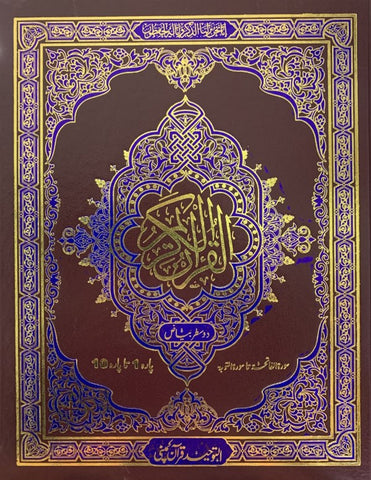 إنا نحن نزلنا الذكر وإنا له لحافظون
القرآن الكريم
دو سطر بیاض
سورۃ الفاتحہ تا سورۃ التوبہ
پارہ 1 تا پارہ 10
التوحید قرآن کمپنی